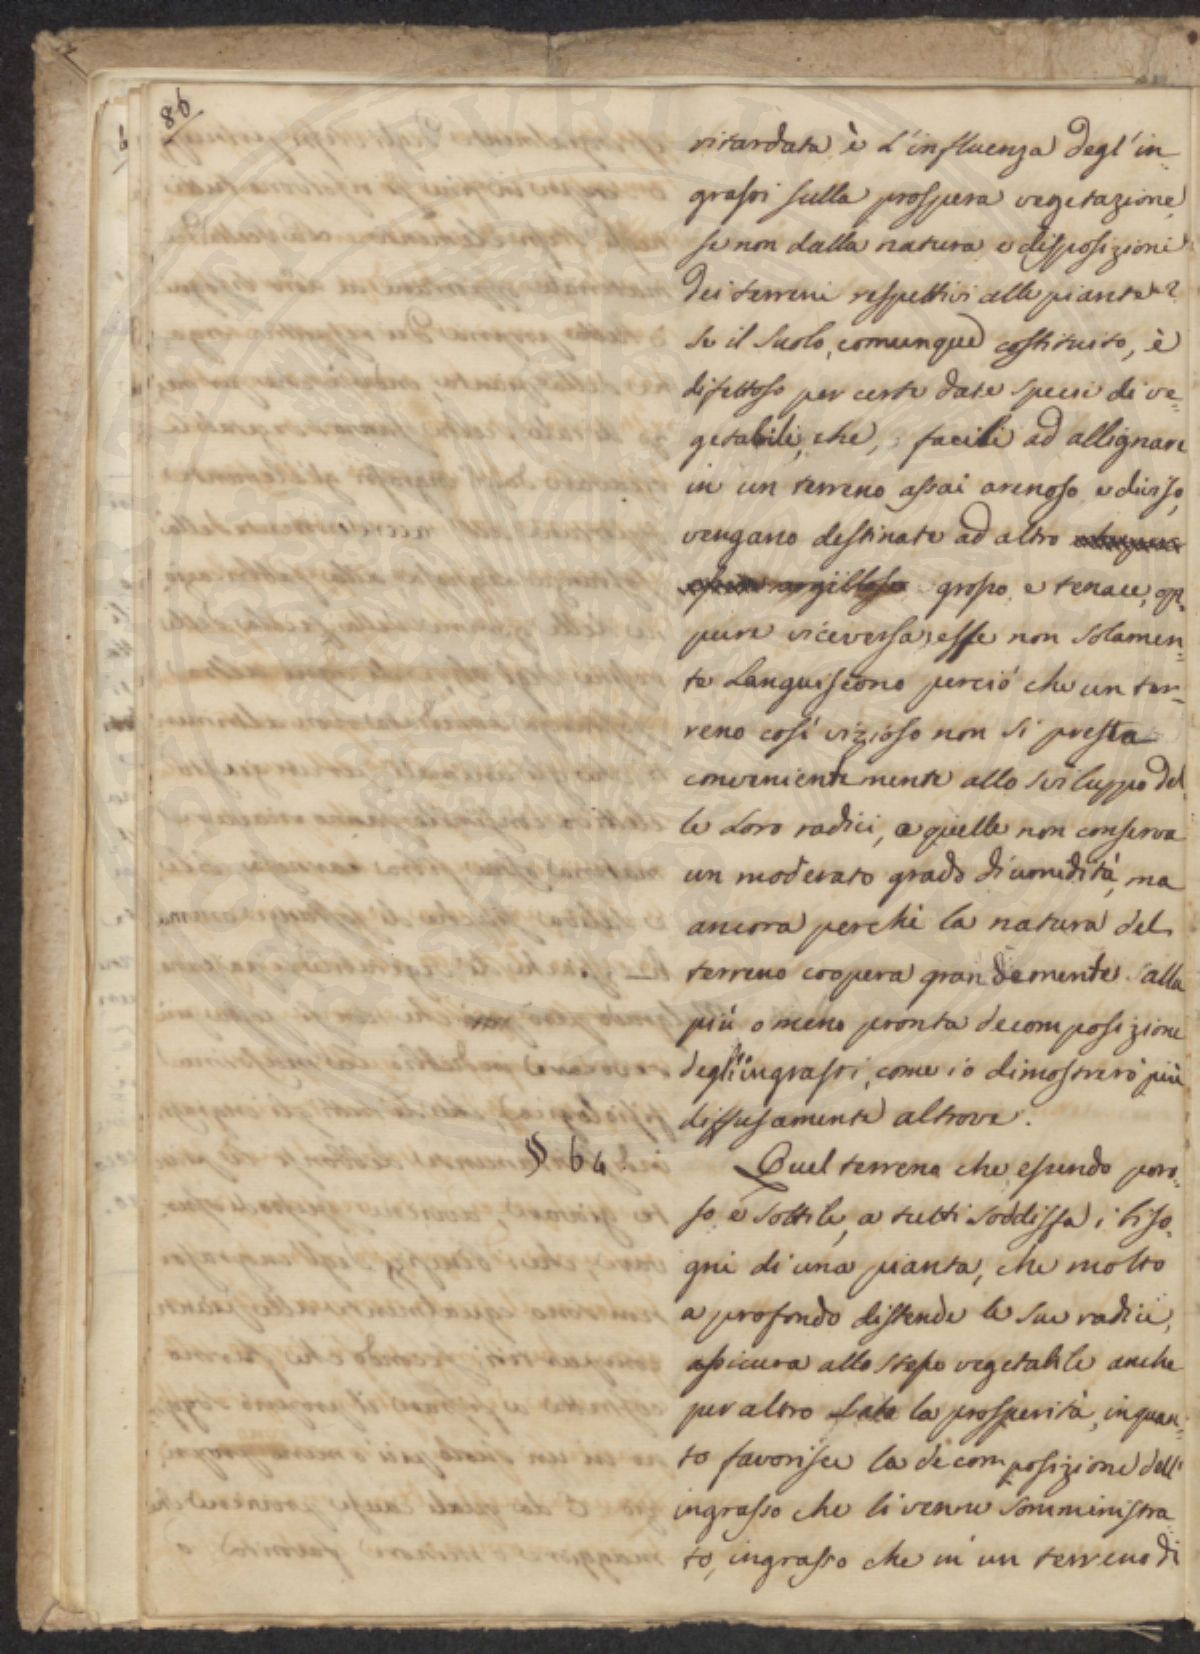 86
ritardata è l'influenza degl'in=
grassi sulla prospera vegetazione,
se non dalla natura e disposizioni
dei terreni respettivi alle piante?
Se il suolo, comunque costituito, è
difettoso per certe date specie di ve=
getabili, che, facili ad allignare
in un terreno assai arenoso e diviso,
vengano destinate ad altro
argilloso grosso e tenace, op=
pure viceversa, esse non solamen=
te languiscono perciò che un ter=
reno così vizioso non si presta
convenientemente allo sviluppo del
le loro radici, a quelle non conserva
un moderato grado di umidità, ma
ancora perchè la natura del
terreno coopera grandemente sulla
più o meno pronta decomposizione
degli ingrassi, come io dimostrerò più
diffusamente altrove.
§ 64.
Quel terreno che essendo poro=
so e sottile, a tutti soddisfa i biso=
gni di una pianta, che molto
a profondo distende le sue radici,
assicura allo stesso vegetabile anche
per altro lato la prosperità, inquan=
to favorisce la decomposizione dell'
ingrasso che li venne somministra
to, ingrasso che in un terreno di